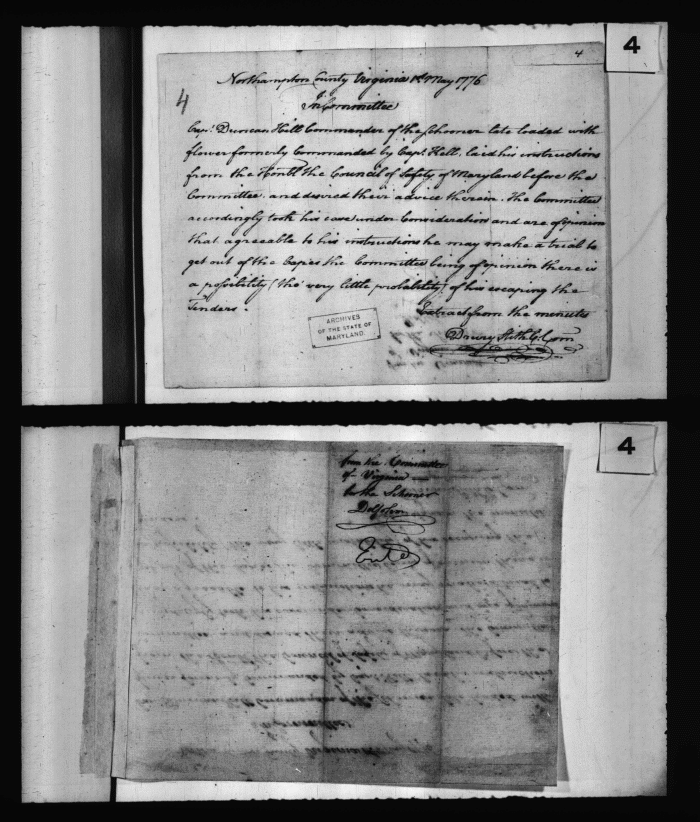 4
4
4
Northampton County Virginia 1st May 1776
In Committee
Capt. Duncan Hill Commander of the Schooner late loaded with
flower formerly Commanded by Capt. Hell, laid his instructions
from the Honble the Council of Safety of Maryland before the
Committee, and desired their advice therein. The Committee
accordingly took his case under Consideration and are of opinion
that agreeable to his instructions he may make a trial to
get out of the Capes the Committee being of opinion there is
a possibility (tho' very little probability) of his escaping the
Tenders.
Extract from the minutes
Drury Stith C. Com
ARCHIVES
OF THE STATE OF
MARYLAND.
4
from the Committee
of Virginia
for the Schoner
Dolphin
Entd